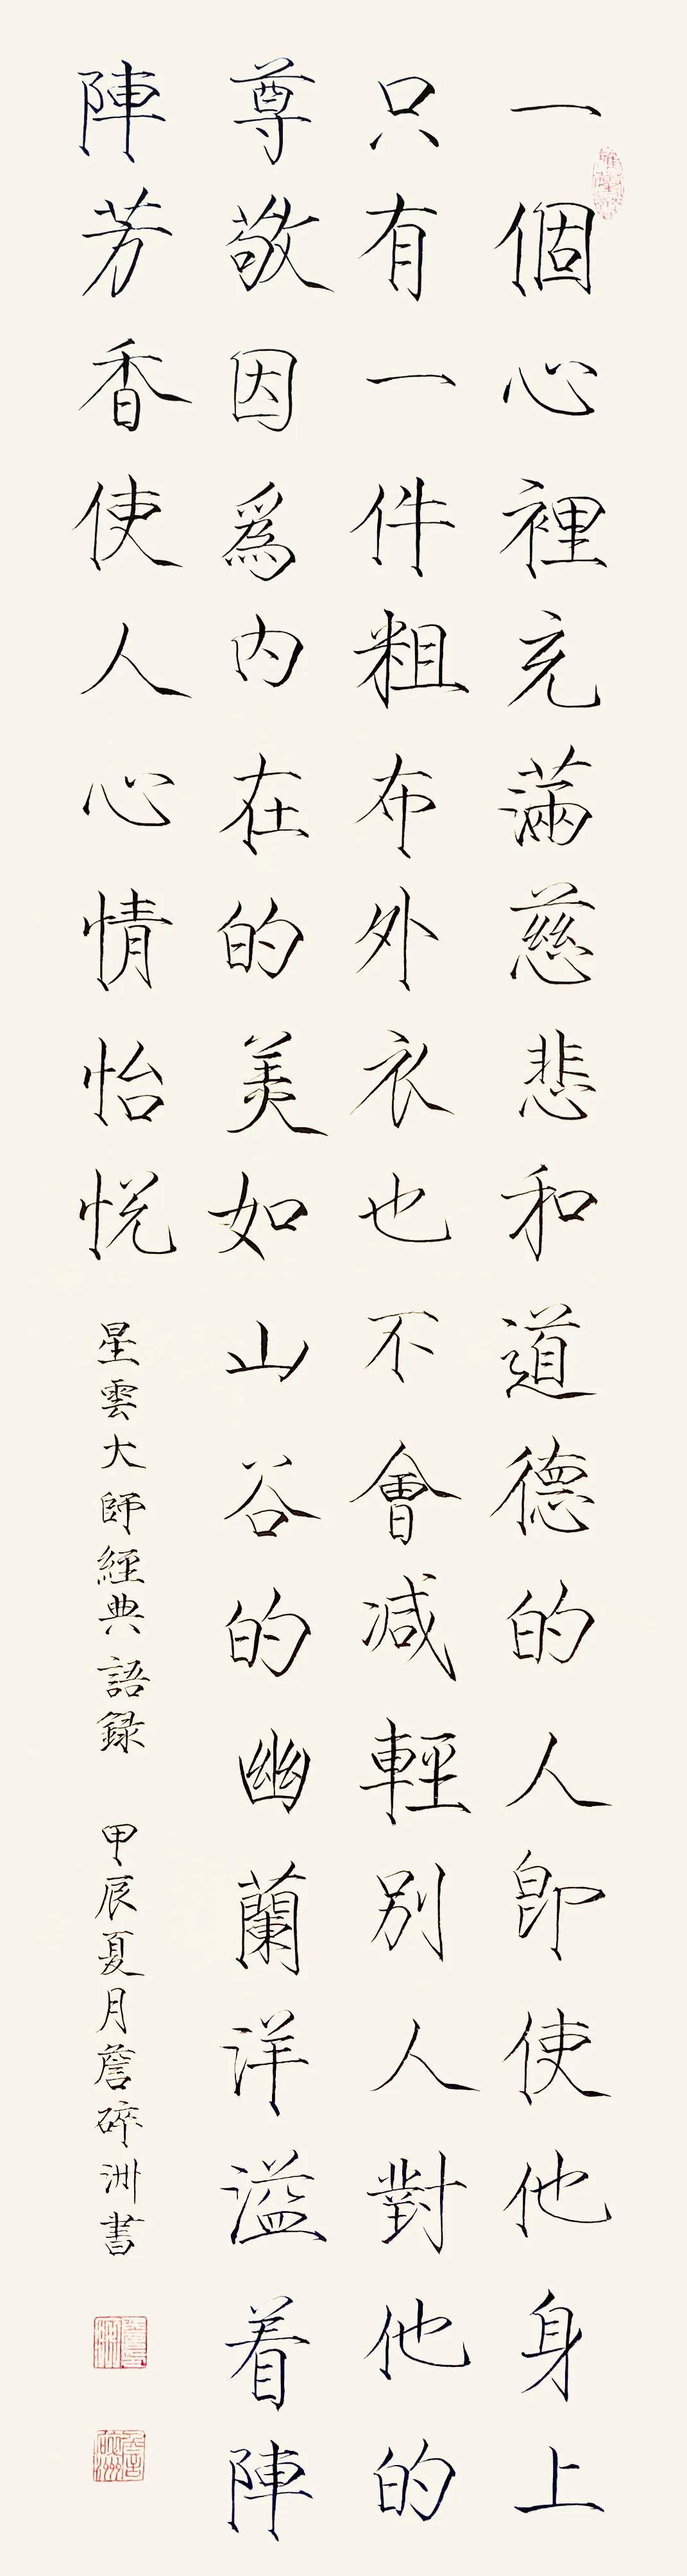 一個心裡充滿慈悲和道德的人即使他身上
只有一件粗布外衣也不會減輕別人對他的
尊敬因爲内在的美如山谷的幽蘭洋溢着陣
陣芳香使人心情怡悅
星雲大師經典語録
甲辰夏月詹碎洲書